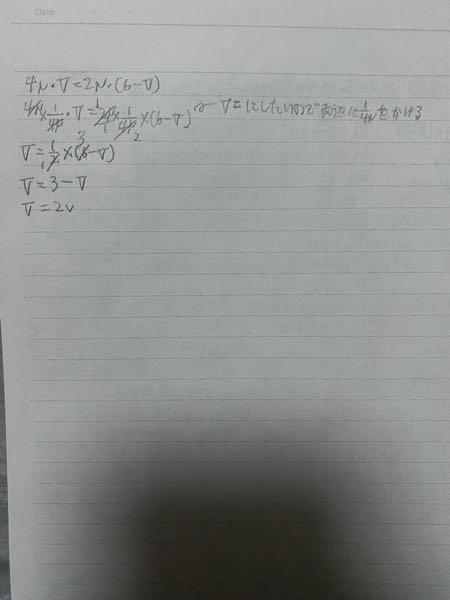 Date
4N・V=2N・(6-V)
4N×1/4N・V=2N×1/4N×(6-V) V=にしたいので両辺に1/4Nをかける
V=1/2×(6-V)
V=3-V
V=2v